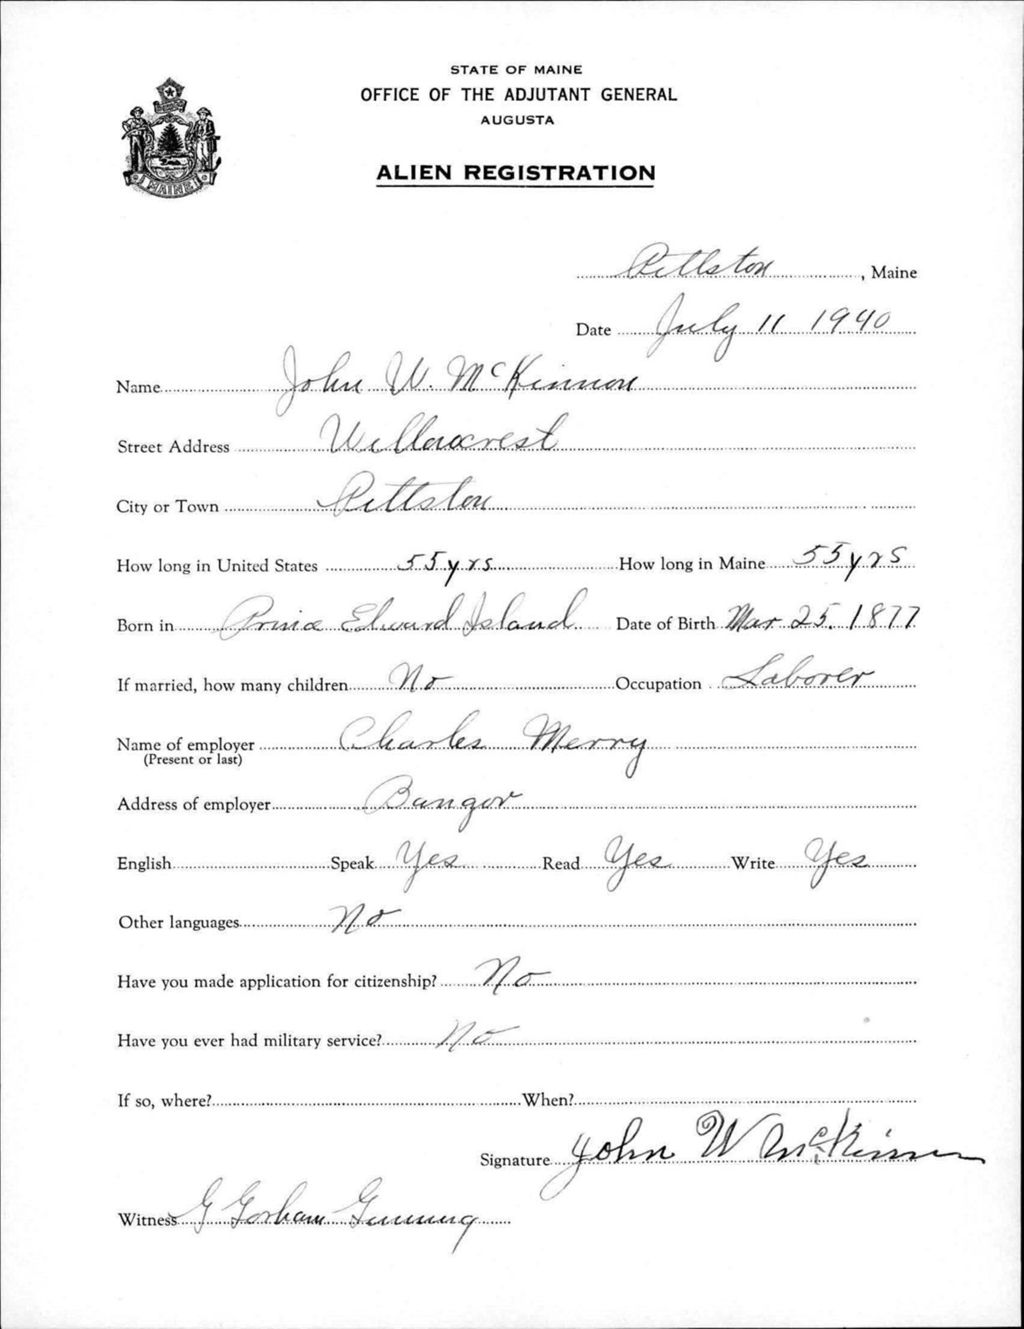 STATE OF MAINE
OFFICE OF THE ADJUTANT GENERAL
AUGUSTA
ALIEN REGISTRATION
MAINE
Pittston, Maine
Date July 11 1940
Name John W. McKinnon
Street Address Willowcrest
City or Town Pittston
How long in United States 55 yrs How long in Maine 55 yrs
Born in Prince Edward Island Date of Birth Mar 25, 1877
If married, how many children No Occupation Laborer
Name of employer Charles Merry
(Present or last)
Address of employer Bangor
English Speak Yes Read Yes Write Yes
Other languages No
Have you made application for citizenship? No
Have you ever had military service? No
If so, where? When?
Signature John W McKinnon
Witness G Gorham